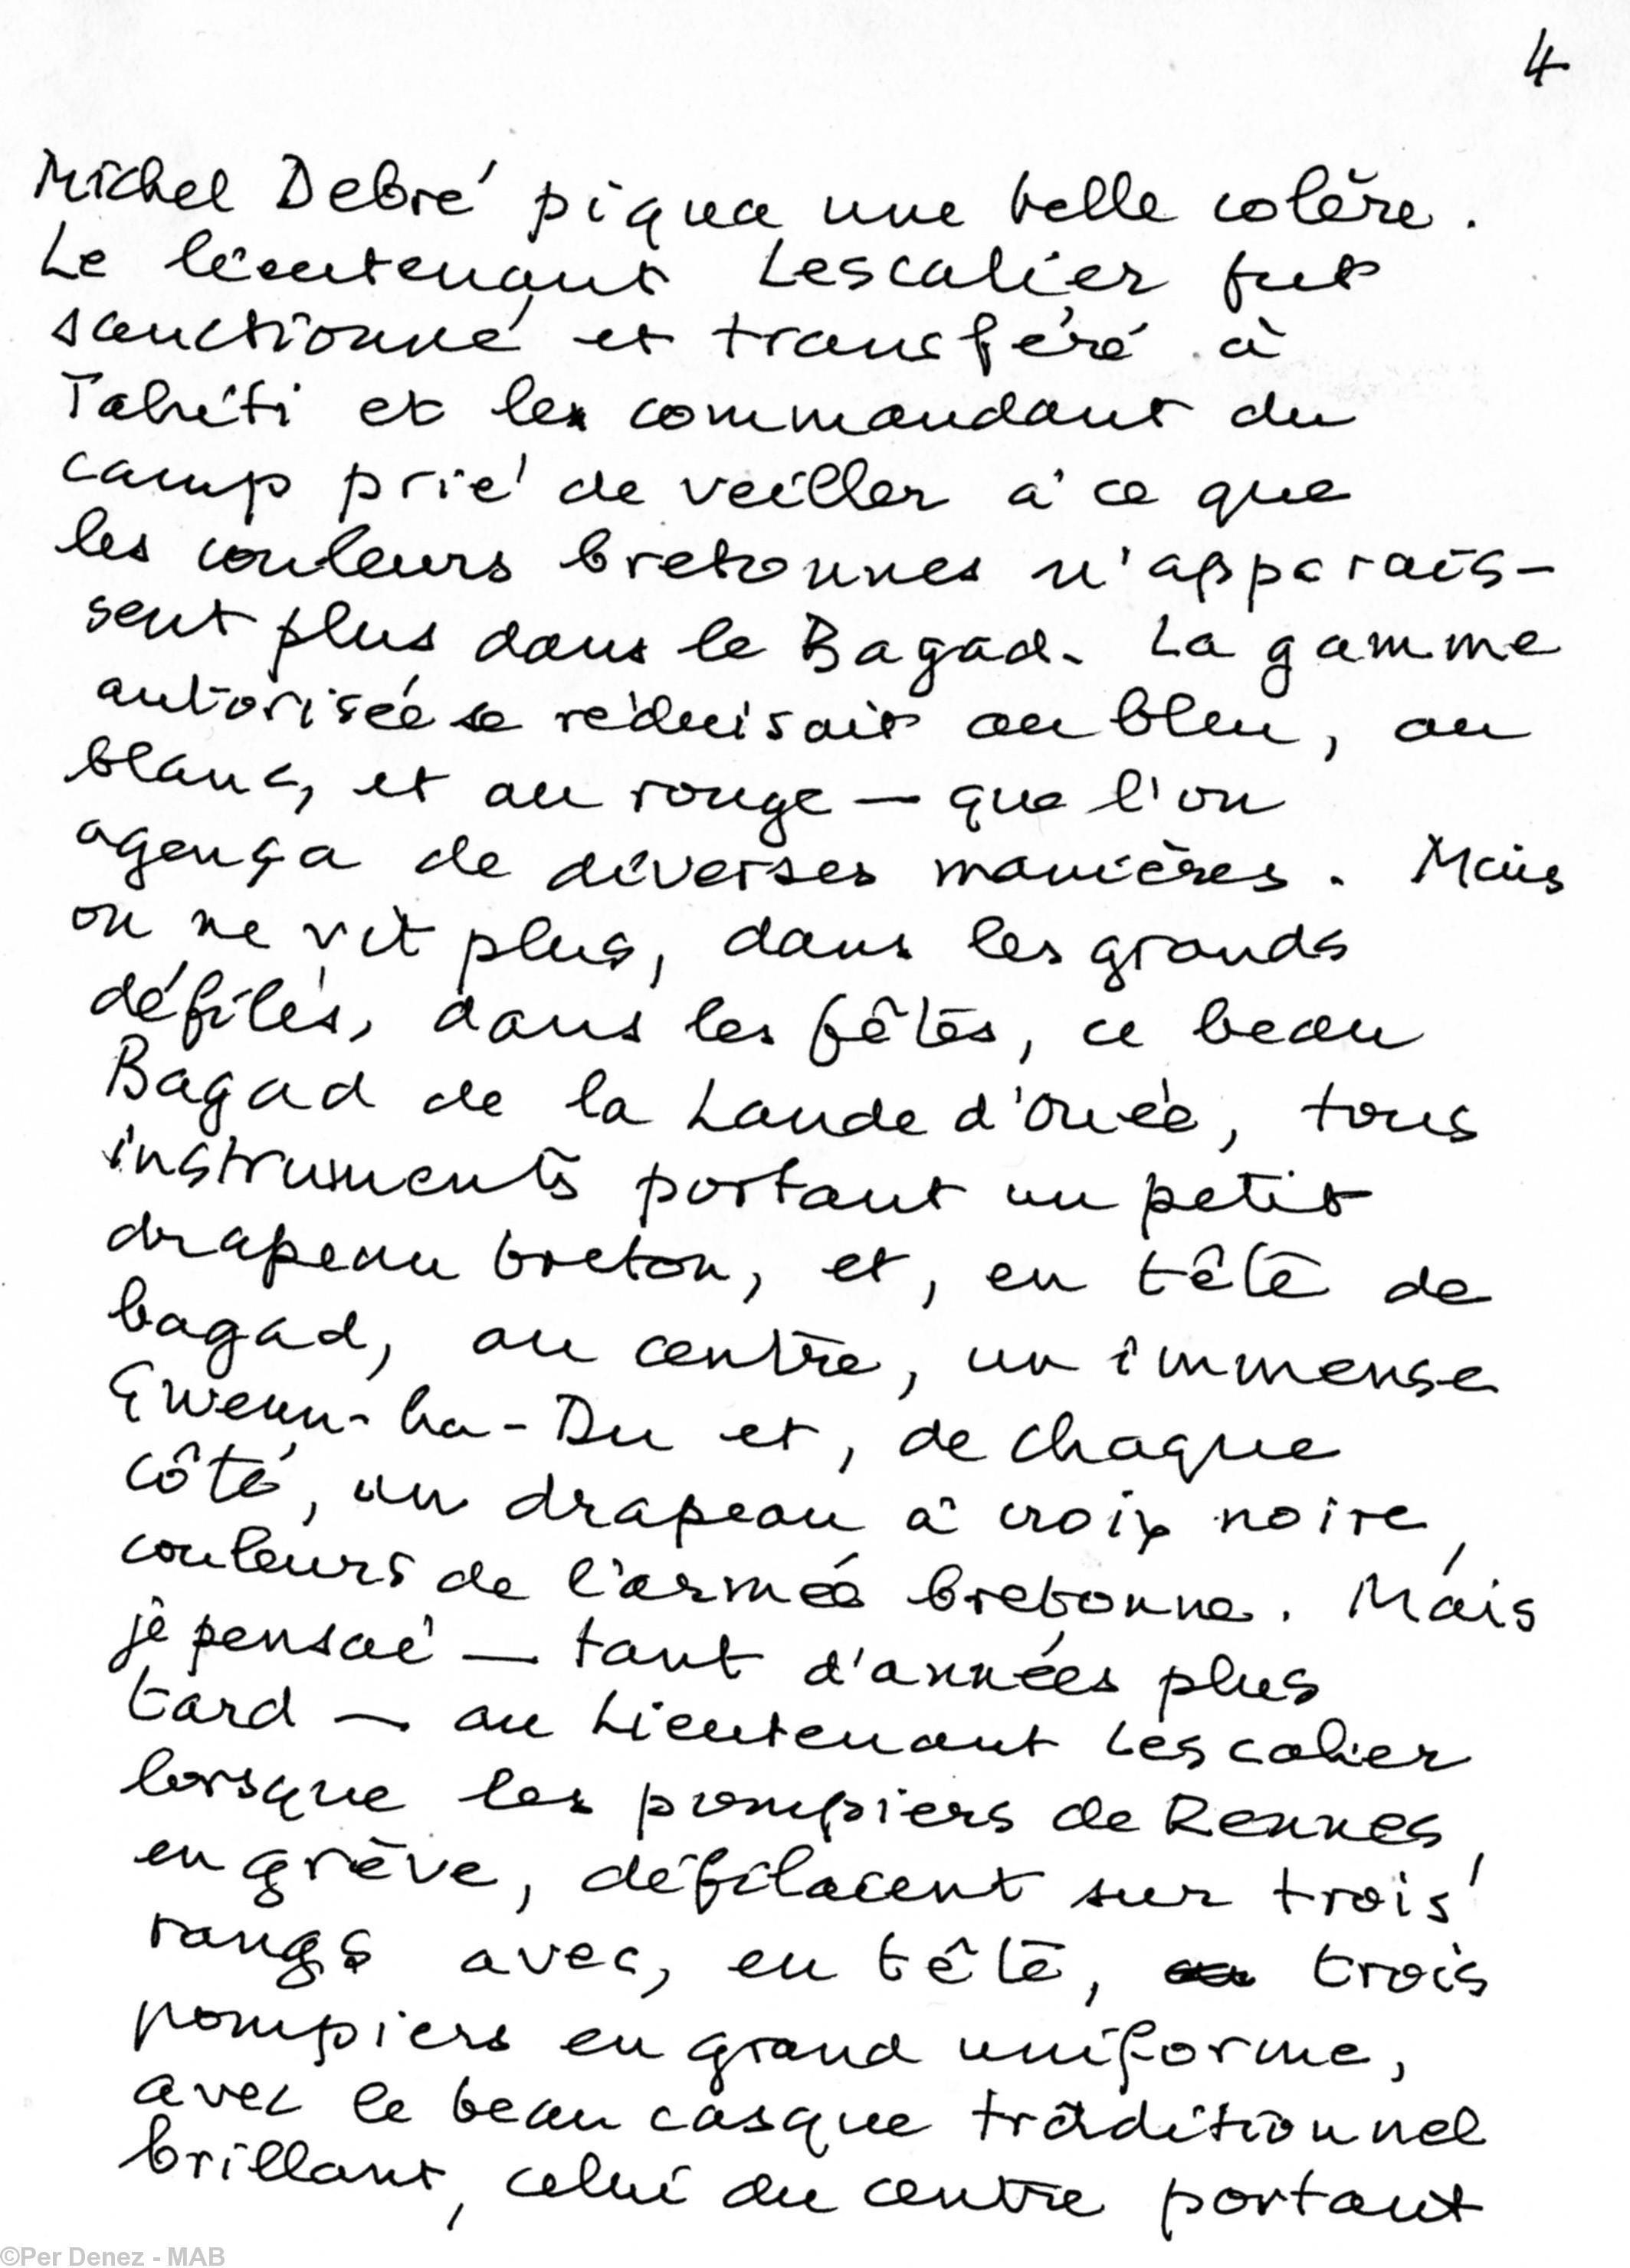 4
Michel Debré piqua une belle colère.
Le lieutenant Lescalier fut
sanctionné et transféré à
Tahiti et le commandant du
camp prié de veiller à ce que
les couleurs bretonnes n'apparais-
sent plus dans le Bagad. La gamme
autorisée se réduisait au bleu, au
blanc, et au rouge — que l'on
agença de diverses manières. Mais
on ne vit plus, dans les grands
défilés, dans les fêtes, ce beau
Bagad de la Lande d'Ouée, tous
instruments portant un petit
drapeau breton, et, en tête de
bagad, au centre, un immense
Gwenn-ha-Du et, de chaque
côté, un drapeau à croix noire,
couleurs de l'armée bretonne. Mais
je pensai — tant d'années plus
tard — au Lieutenant Lescalier
lorsque les pompiers de Rennes,
en grève, défilaient sur trois
rangs avec, en tête, trois
pompiers en grand uniforme,
avec le beau casque traditionnel
brillant, celui du centre portant
©Per Denez - MAB